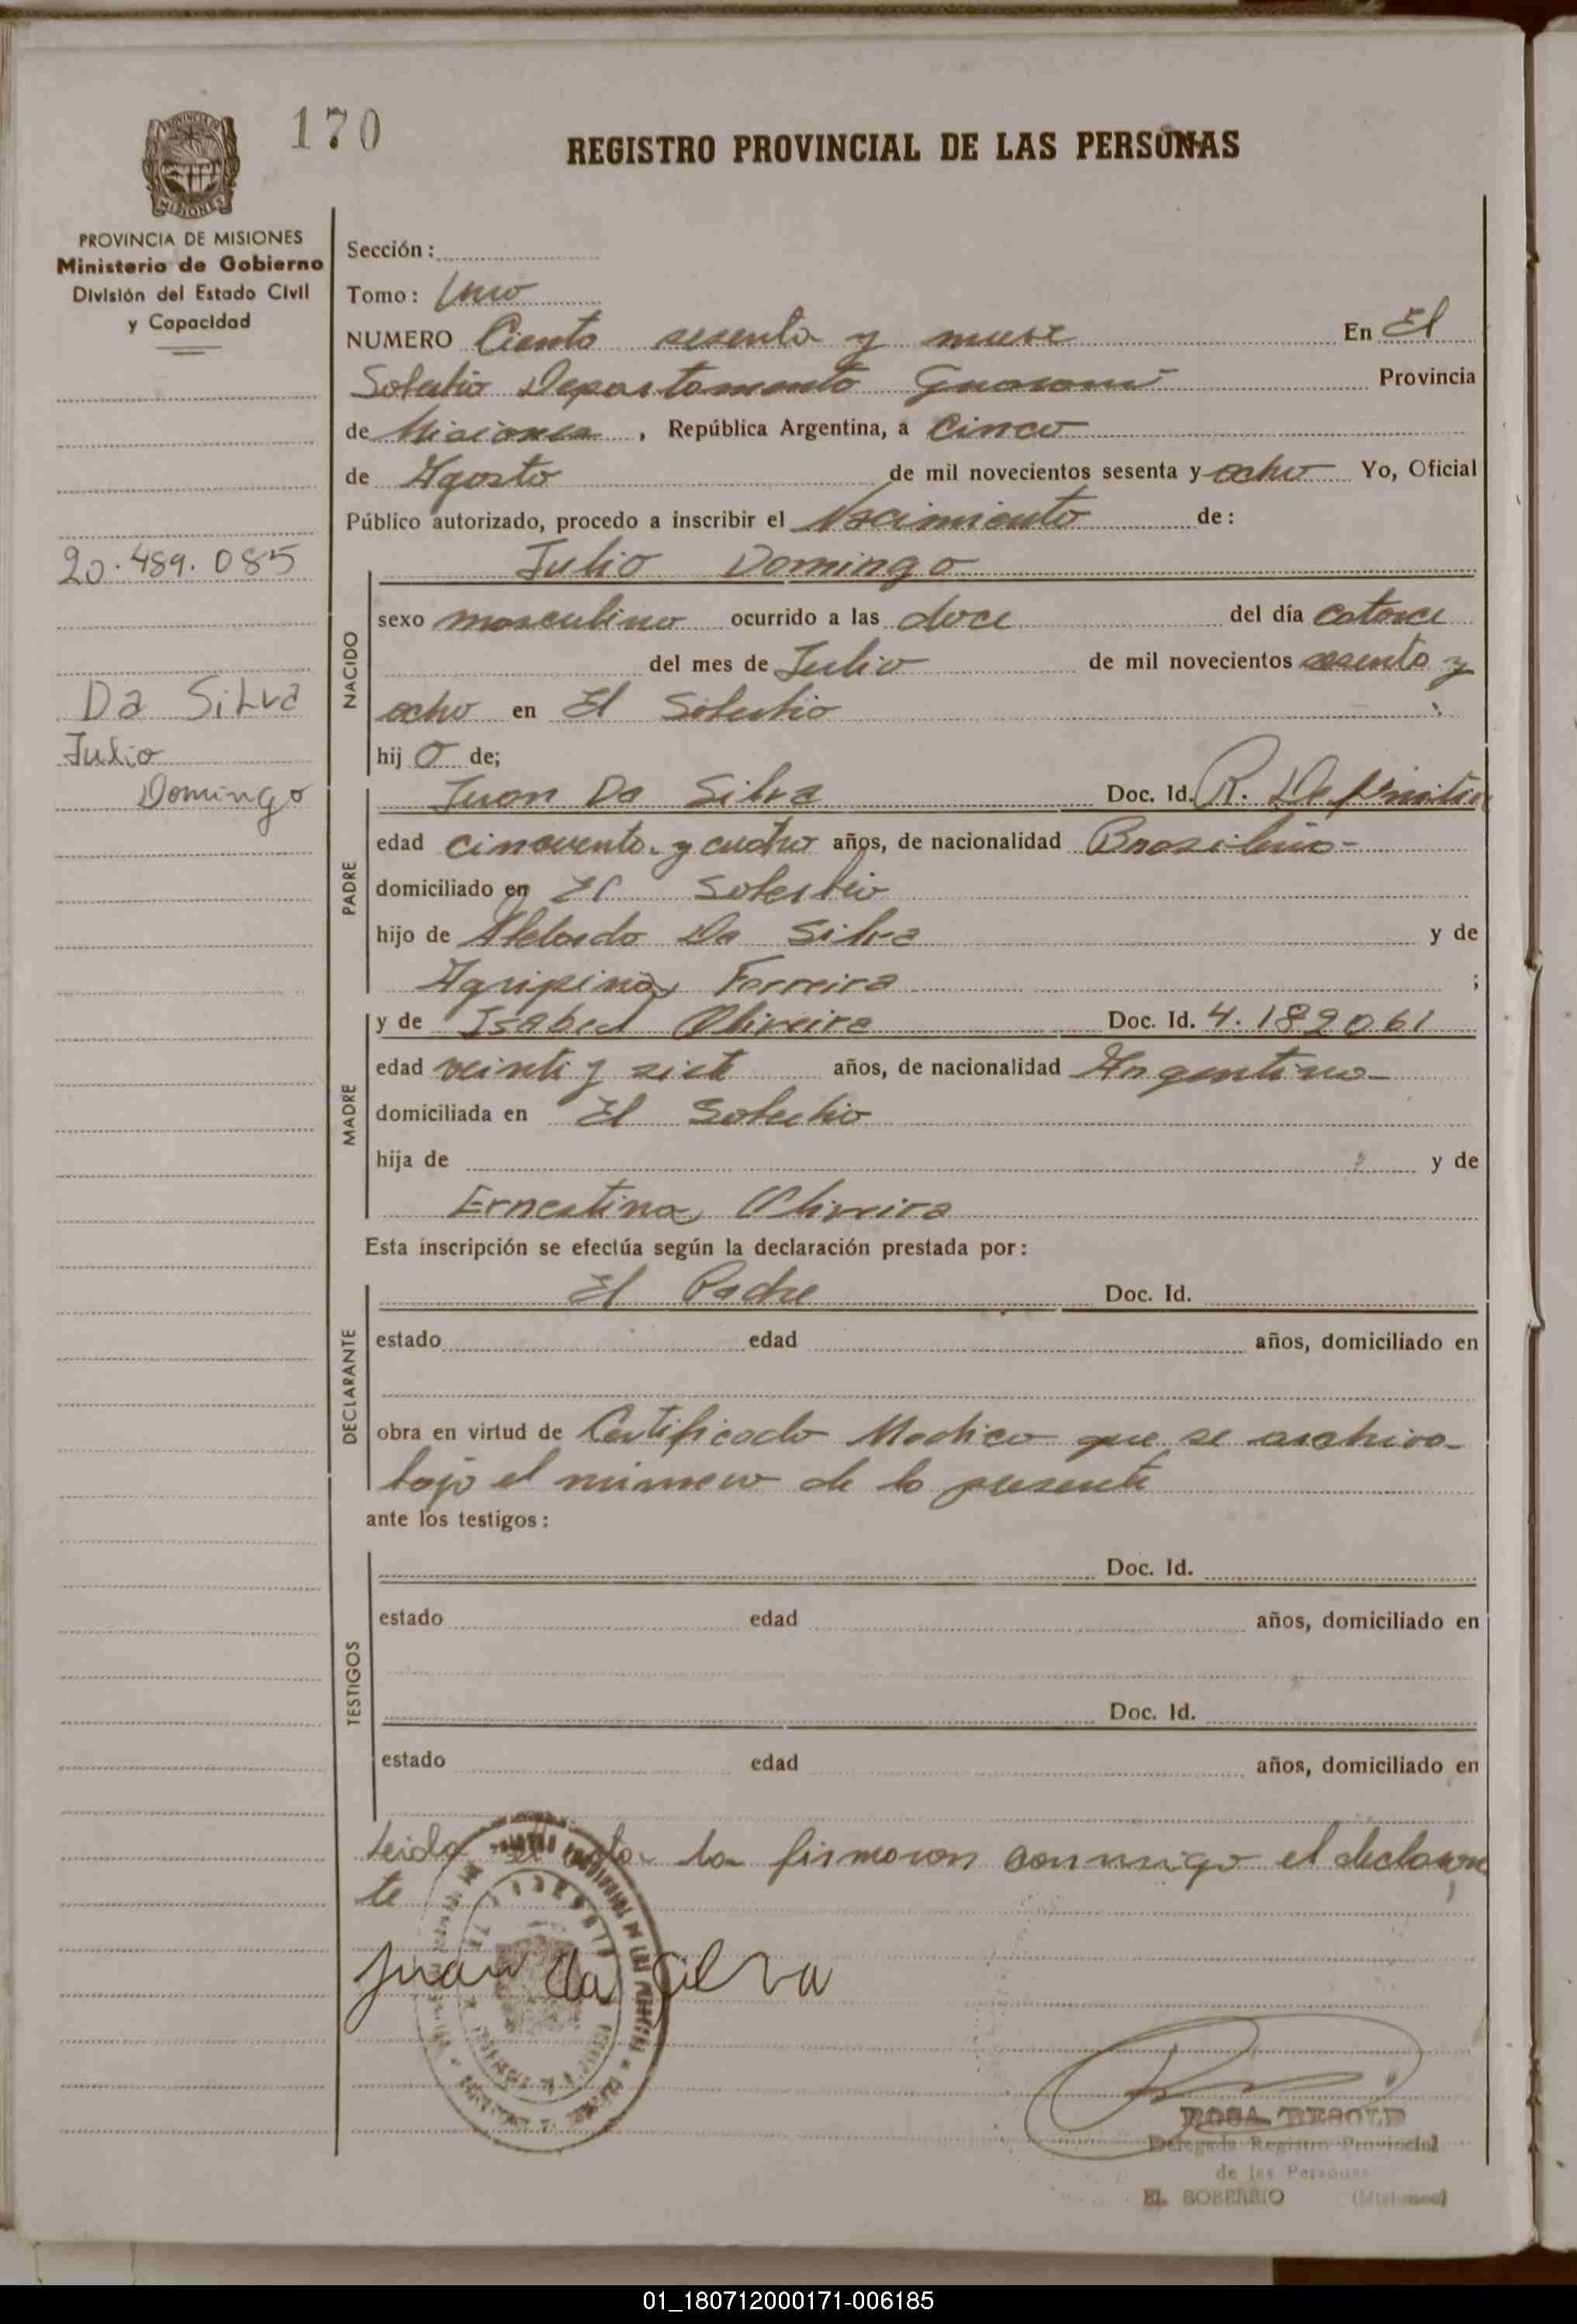 170
REGISTRO PROVINCIAL DE LAS PERSONAS
PROVINCIA DE MISIONES
Ministerio de Gobierno
División del Estado Civil
y Capacidad
Sección:
Tomo: Uno
NUMERO Ciento sesenta y nueve En El
Soberbio Departamento Guarani Provincia
de Misiones, República Argentina, a Cinco
de Agosto de mil novecientos sesenta y ocho Yo, Oficial
Público autorizado, procedo a inscribir el Nacimiento de:
20.489.085
Julio Domingo
NACIDO
sexo masculino ocurrido a las doce del día catorce
del mes de Julio de mil novecientos sesenta y
Da Silva
ocho en El Soberbio
Julio
hijo de;
Domingo
PADRE
Juan Da Silva Doc. Id. R. Definitiva
edad cincuenta y cuatro años, de nacionalidad Brasilino
domiciliado en El Soberbio
hijo de Da Silva y de
Agripina Ferreira ;
MADRE
y de Isabel Oliveira Doc. Id. 4.189061
edad veinti y siete años, de nacionalidad Argentina
domiciliada en El Soberbio
hija de y de
Ernestina Oliveira
Esta inscripción se efectúa según la declaración prestada por:
DECLARANTE
El Padre Doc. Id.
estado edad años, domiciliado en
obra en virtud de Certificado Medico que se archiva
bajo el numero de la presente
ante los testigos:
TESTIGOS
Doc. Id.
estado edad años, domiciliado en
Doc. Id.
estado edad años, domiciliado en
Leida el acta la firmaron conmigo el declaran
te
Juan da Silva
ROSA
Delegada Registro Provincial
de las Personas
EL SOBERBIO (Misiones)
01_180712000171-006185